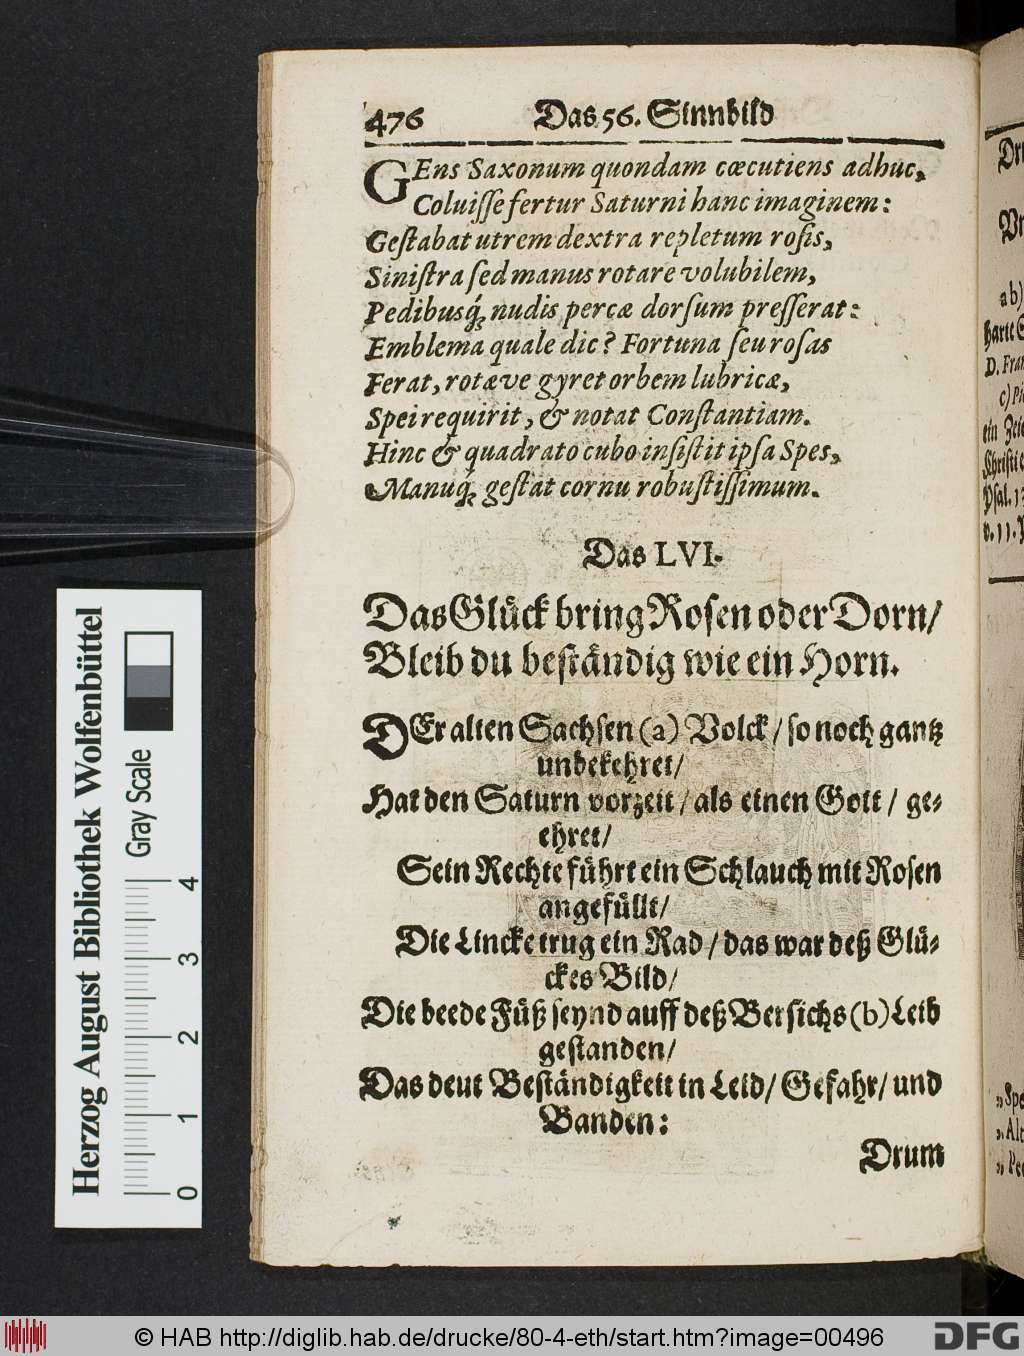 476 Das 56. Sinnbild
GEns Saxonum quondam cœcutiens adhuc,
Coluisse fertur Saturni hanc imaginem:
Gestabat utrem dextra repletum rosis,
Sinistra sed manus rotare volubilem,
Pedibusq́; nudis percæ dorsum presserat:
Emblema quale dic? Fortuna seu rosas
Ferat, rotæve gyret orbem lubricæ,
Spei requirit, & notat Constantiam.
Hinc & quadrato cubo insistit ipsa Spes,
Manuq́; gestat cornu robustissimum.
Das LVI.
Das Glück bring Rosen oder Dorn/
Bleib du beständig wie ein Horn.
DEr alten Sachsen (a) Volck / so noch gantz
unbekehret/
Hat den Saturn vorzeit / als einen Gott / ge-
ehret/
Sein Rechte führt ein Schlauch mit Rosen
angefüllt/
Die Lincke trug ein Rad / das war deß Glü-
ckes Bild/
Die beede Füß seynd auff deß Bersichs (b) Leib
gestanden/
Das deut Beständigkeit in Leid/ Gefahr/ und
Banden:
Drum
Herzog August Bibliothek Wolfenbüttel
Gray Scale
0 1 2 3 4
© HAB http://diglib.hab.de/drucke/80-4-eth/start.htm?image=00496
DFG